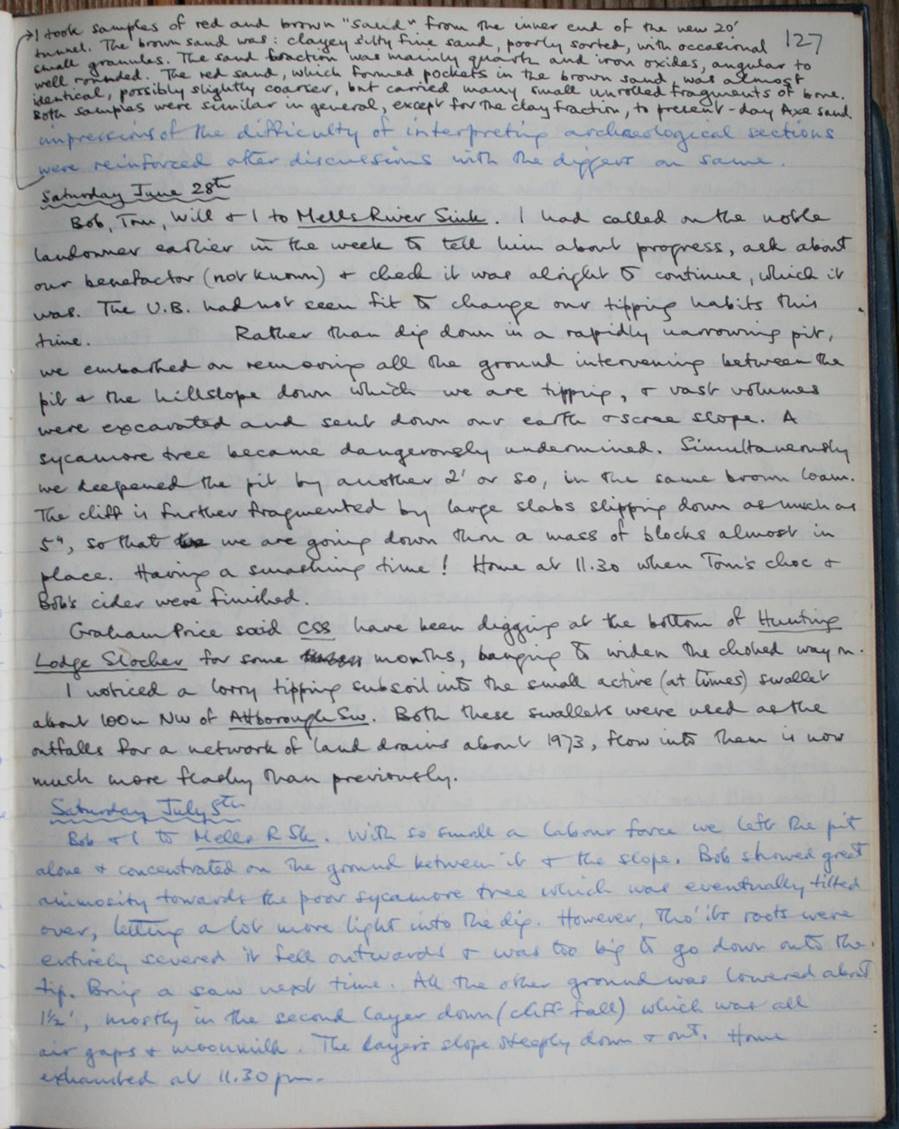 I took samples of red and brown "sand" from the inner end of the new 20'
127
tunnel. The brown sand was: clayey silty fine sand, poorly sorted, with occasional
small granules. The sand fraction was mainly quartz and iron oxides, angular to
well rounded. The red sand, which formed pockets in the brown sand, was almost
identical, possibly slightly coarser, but carried many small unrolled fragments of bone.
Both samples were similar in general, except for the clay fraction, to present-day Axe sand.
impressions of the difficulty of interpreting archaeological sections
were reinforced after discussions with the diggers on same.
Saturday June 28th
Bob, Tom, Will & I to Mells River Sink. I had called on the noble
landowner earlier in the week to tell him about progress, ask about
our benefactor (not known) & check it was alright to continue, which it
was. The U.B. had not seen fit to change our tipping habits this
time. Rather than dig down in a rapidly narrowing pit,
we embarked on removing all the ground intervening between the
pit & the hillslope down which we are tipping, & vast volumes
were excavated and sent down our earth & scree slope. A
sycamore tree became dangerously undermined. Simultaneously
we deepened the pit by another 2' or so, in the same brown loam.
The cliff is further fragmented by large slabs slipping down as much as
5", so that we are going down thro a mass of blocks almost in
place. Having a smashing time! Home at 11.30 when Tom's choc &
Bob's cider were finished.
Graham Price said CSS have been digging at the bottom of Hunting
Lodge Slocker for some months, banging to widen the choked way on.
I noticed a lorry tipping subsoil into the small active (at times) swallet
about 100m NW of Attborough Sw. Both these swallets were used as the
outfalls for a network of land drains about 1973, flow into them is now
much more flashy than previously.
Saturday July 5th
Bob & I to Mells R Sk. With so small a labour force we left the pit
alone & concentrated on the ground between it & the slope. Bob showed great
animosity towards the poor sycamore tree which was eventually tilted
over, letting a lot more light into the dig. However, tho' its roots were
entirely severed it fell outwards & was too big to go down onto the
tip. Bring a saw next time. All the other ground was lowered about
1½', mostly in the second layer down (cliff fall) which was all
air gaps & moonmilk. The layers slope steeply down & out. Home
exhausted at 11.30 pm.